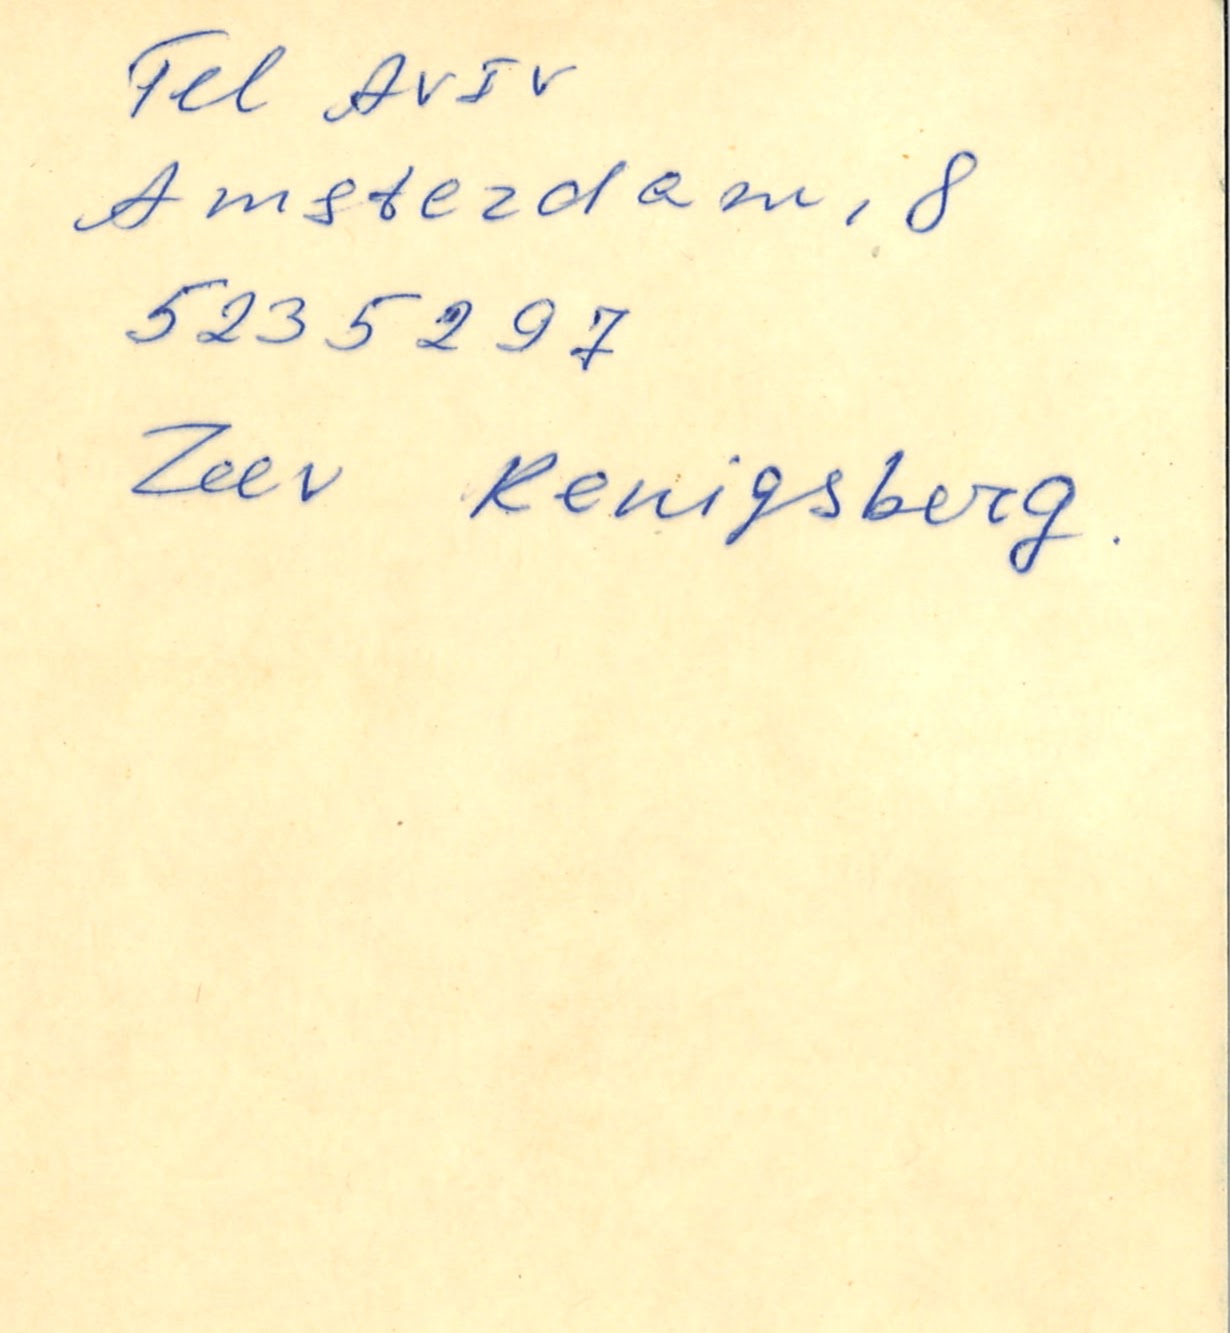 Tel AvIv
Amsterdam, 8
5235297
Zeev Kenigsberg.